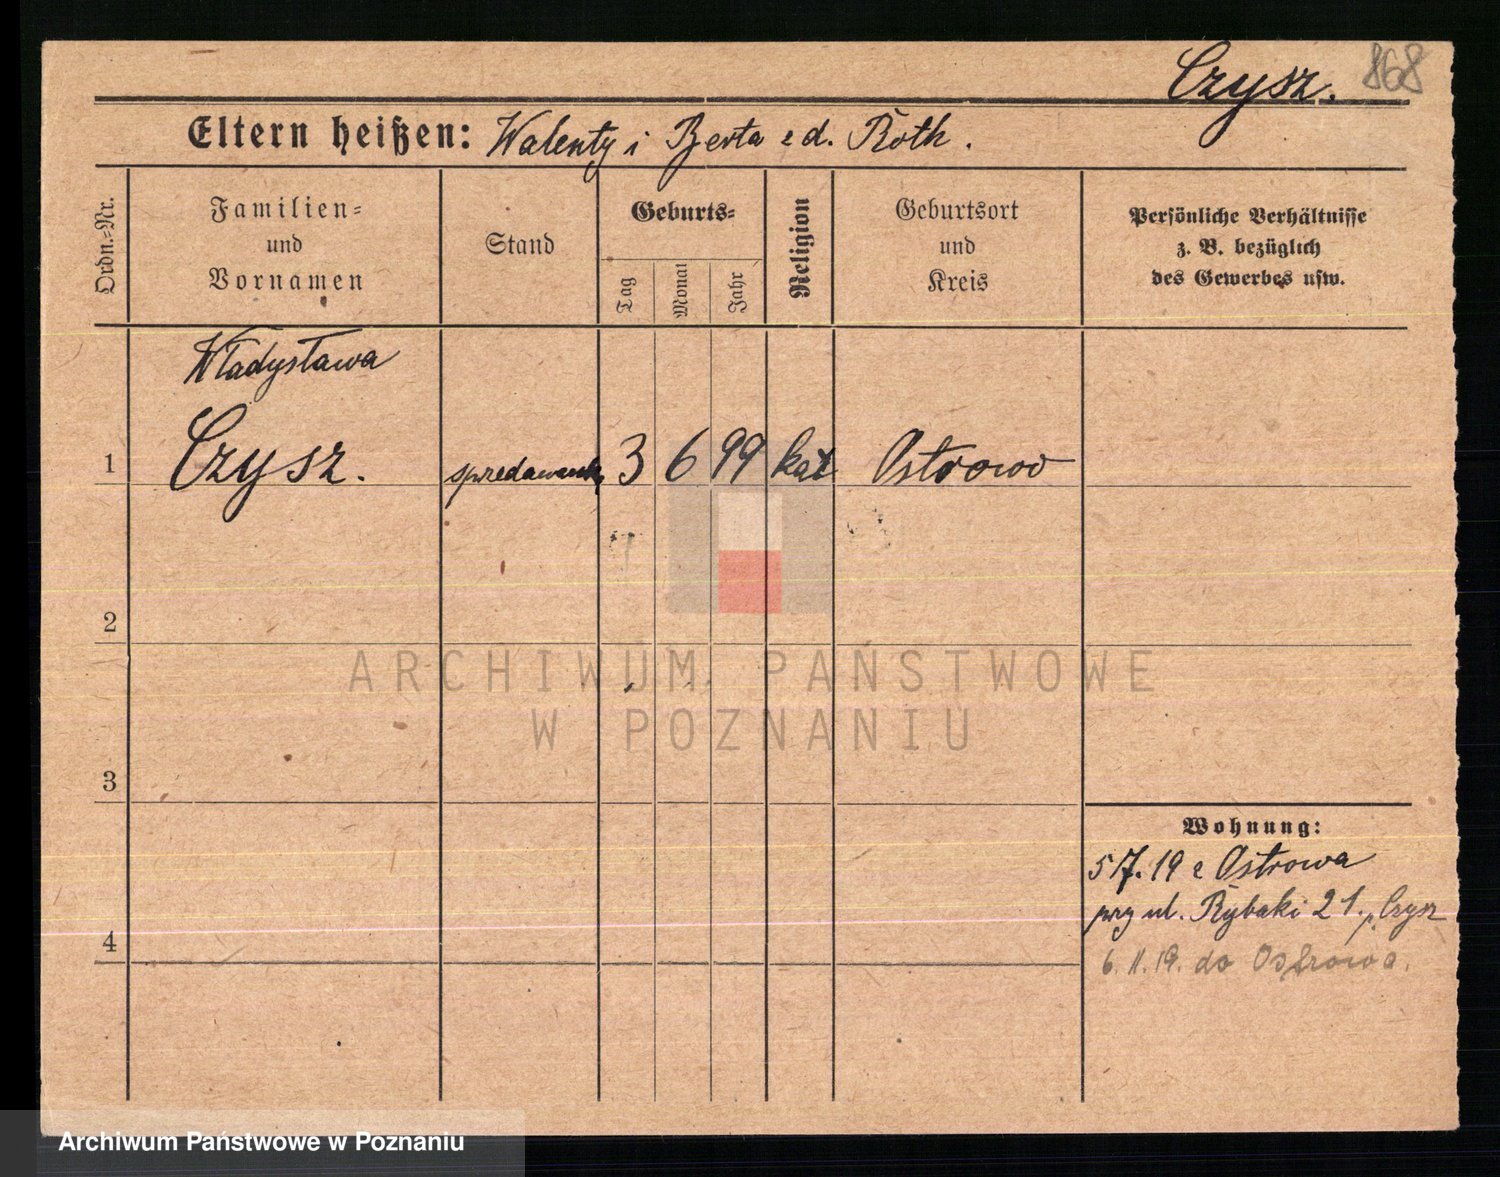 Czysz. 868
Eltern heißen: Walenty i Berta z d. Roth.
Ordn.-Nr.
Familien-
und
Vornamen
Stand
Geburts-
Tag
Monat
Jahr
Religion
Geburtsort
und
Kreis
Persönliche Verhältnisse
z. B. bezüglich
des Gewerbes usw.
Władysława
1 Czysz. 3 6 99 kat Ostrowo
2
ARCHIWUM PAŃSTWOWE
W POZNANIU
3
Wohnung:
5/7.19 z Ostrowa
przy ul. Rybaki 21. p. Czysz
4
6.11.19. do Ostrowa.
Archiwum Państwowe w Poznaniu